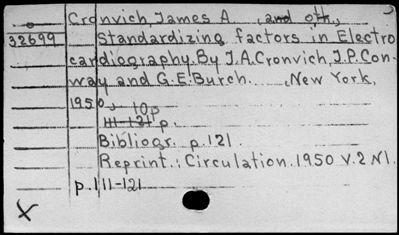 Cronvich, James A. and oth.,
32699 Standardizing factors in Electro
cardiography. By J.A. Cronvich, J.P. Con-
way and G.E. Burch. New York,
1950. 10p
111-121 p.
Bibliogr. p.121.
Reprint.: Circulation. 1950 V.2 N1.
p.111-121
X